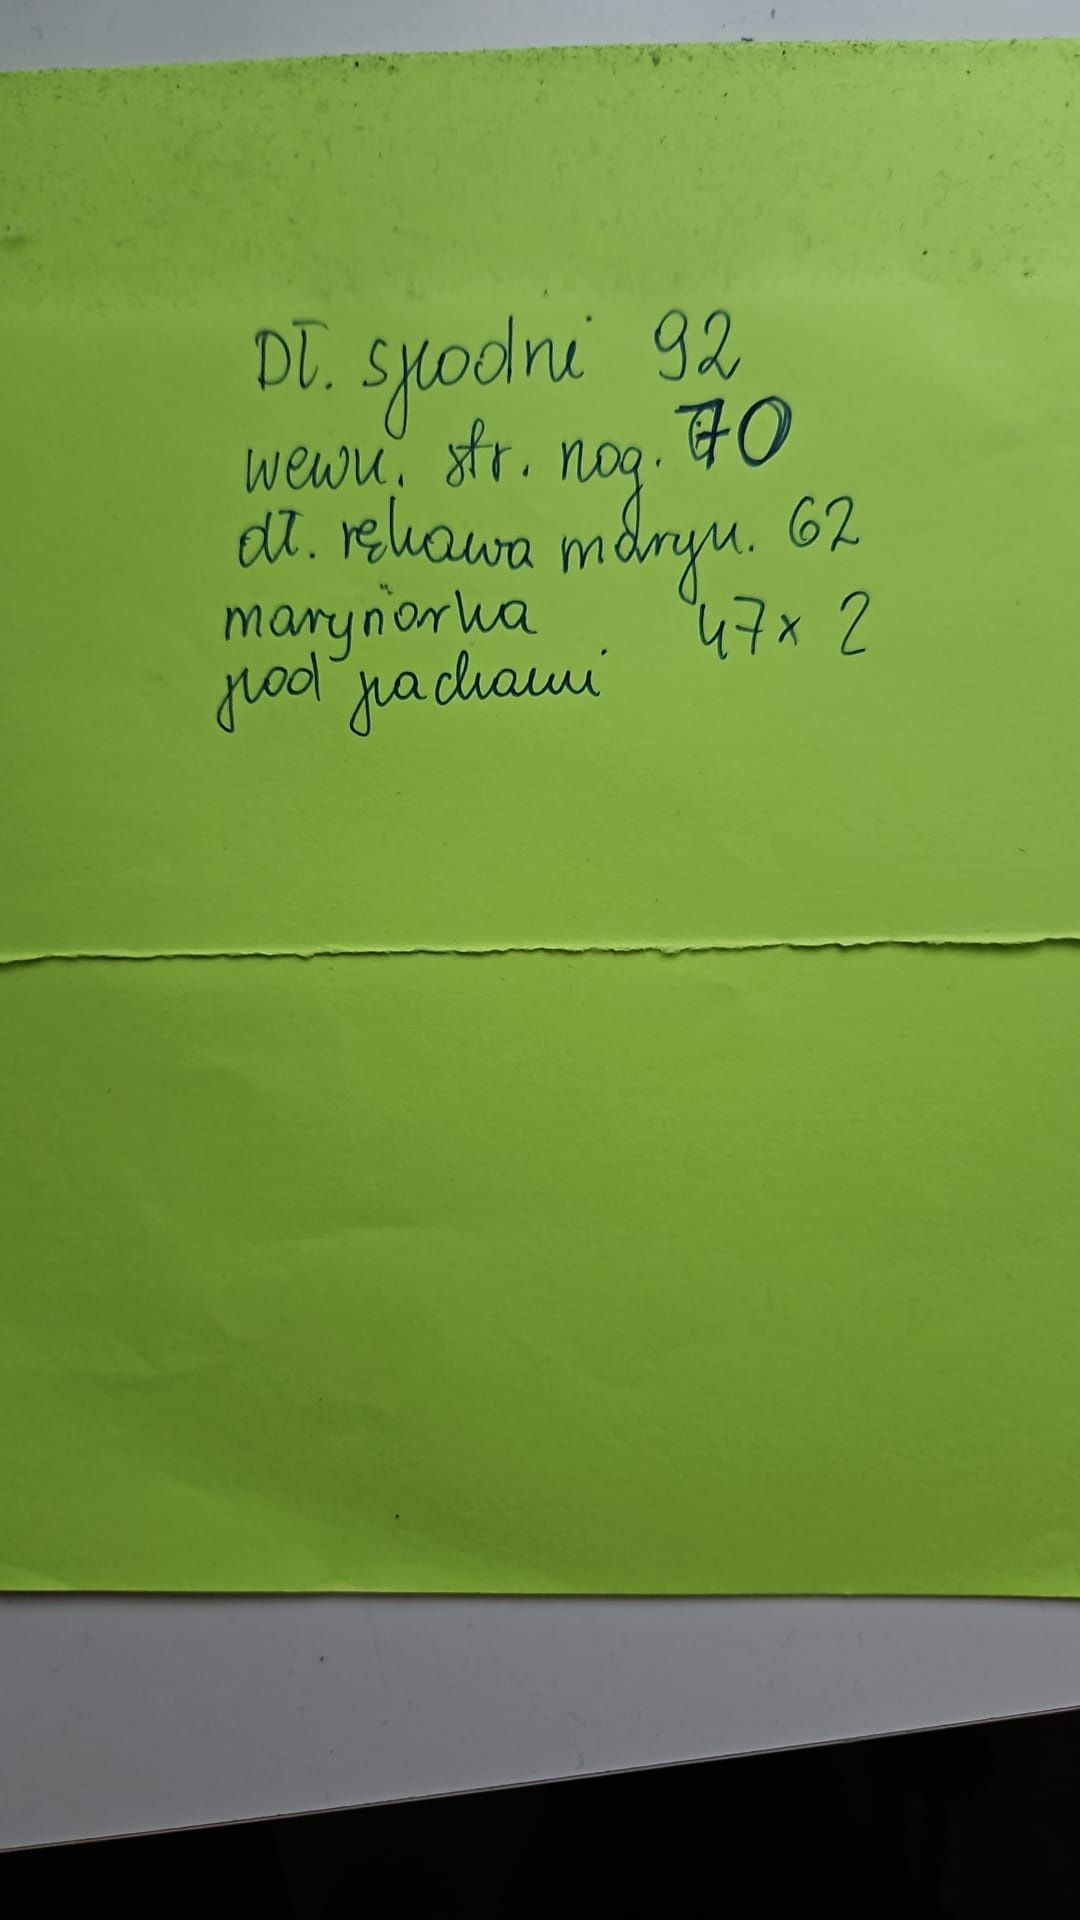 Dł. spodni 92
wewn. str. nog. 70
dł. rękawa maryn. 62
marynarka 47x2
pod pachami